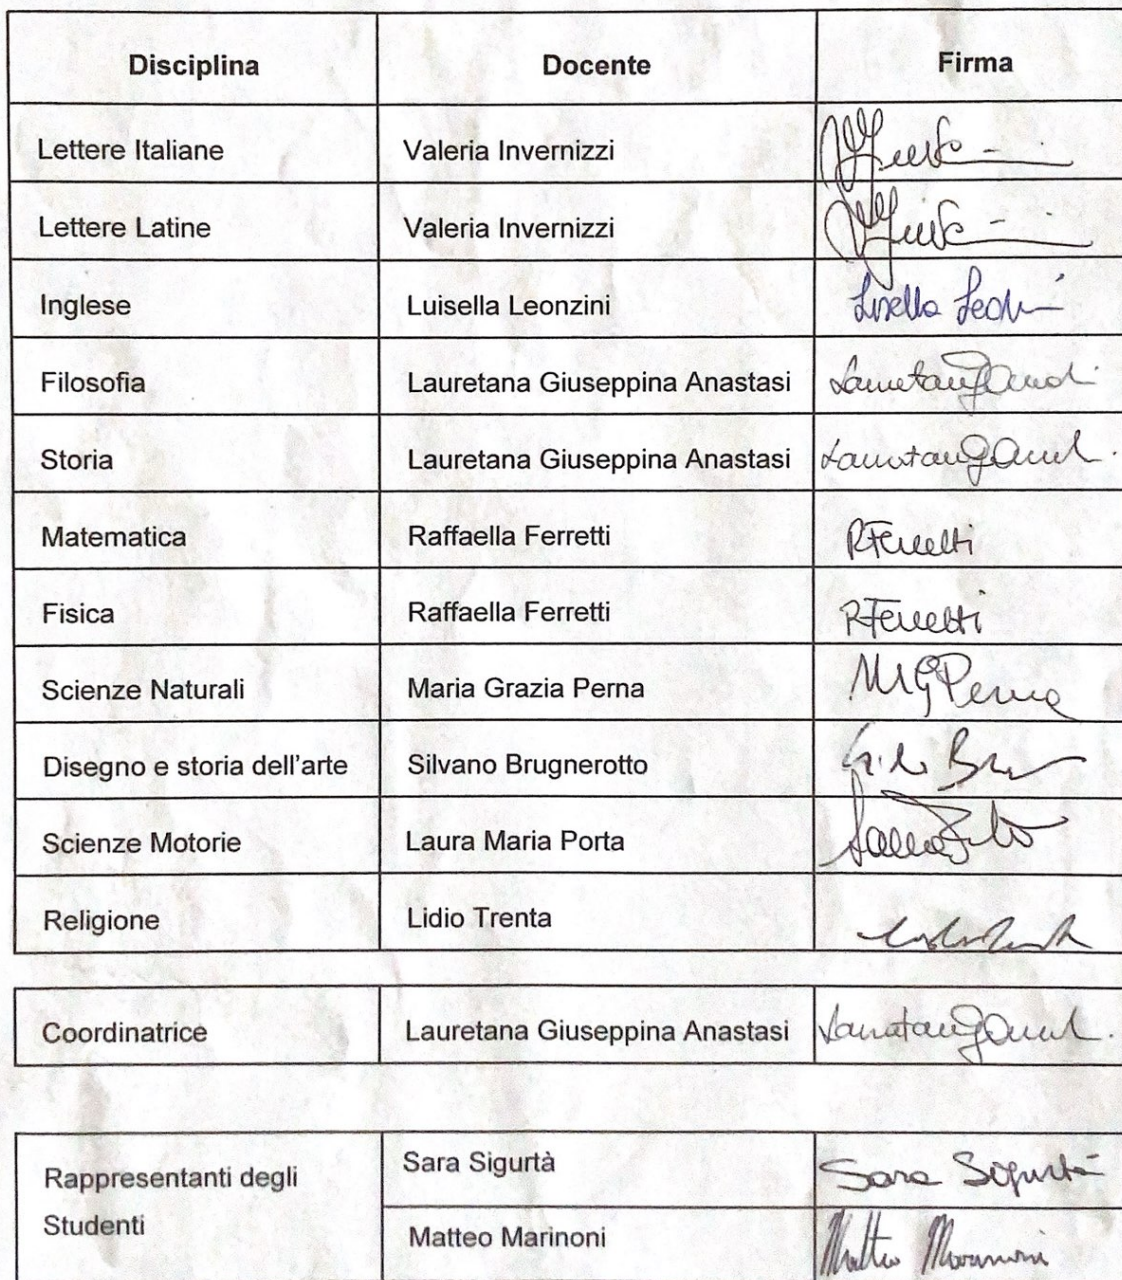 Disciplina Docente Firma
Lettere Italiane Valeria Invernizzi
Lettere Latine Valeria Invernizzi
Inglese Luisella Leonzini
Filosofia Lauretana Giuseppina Anastasi
Storia Lauretana Giuseppina Anastasi
Matematica Raffaella Ferretti RFerretti
Fisica Raffaella Ferretti RFerretti
Scienze Naturali Maria Grazia Perna MGPerna
Disegno e storia dell'arte Silvano Brugnerotto
Scienze Motorie Laura Maria Porta
Religione Lidio Trenta
Coordinatrice Lauretana Giuseppina Anastasi
Rappresentanti degli
Studenti
Sara Sigurtà Sara Sigurtà
Matteo Marinoni Matteo Marinoni